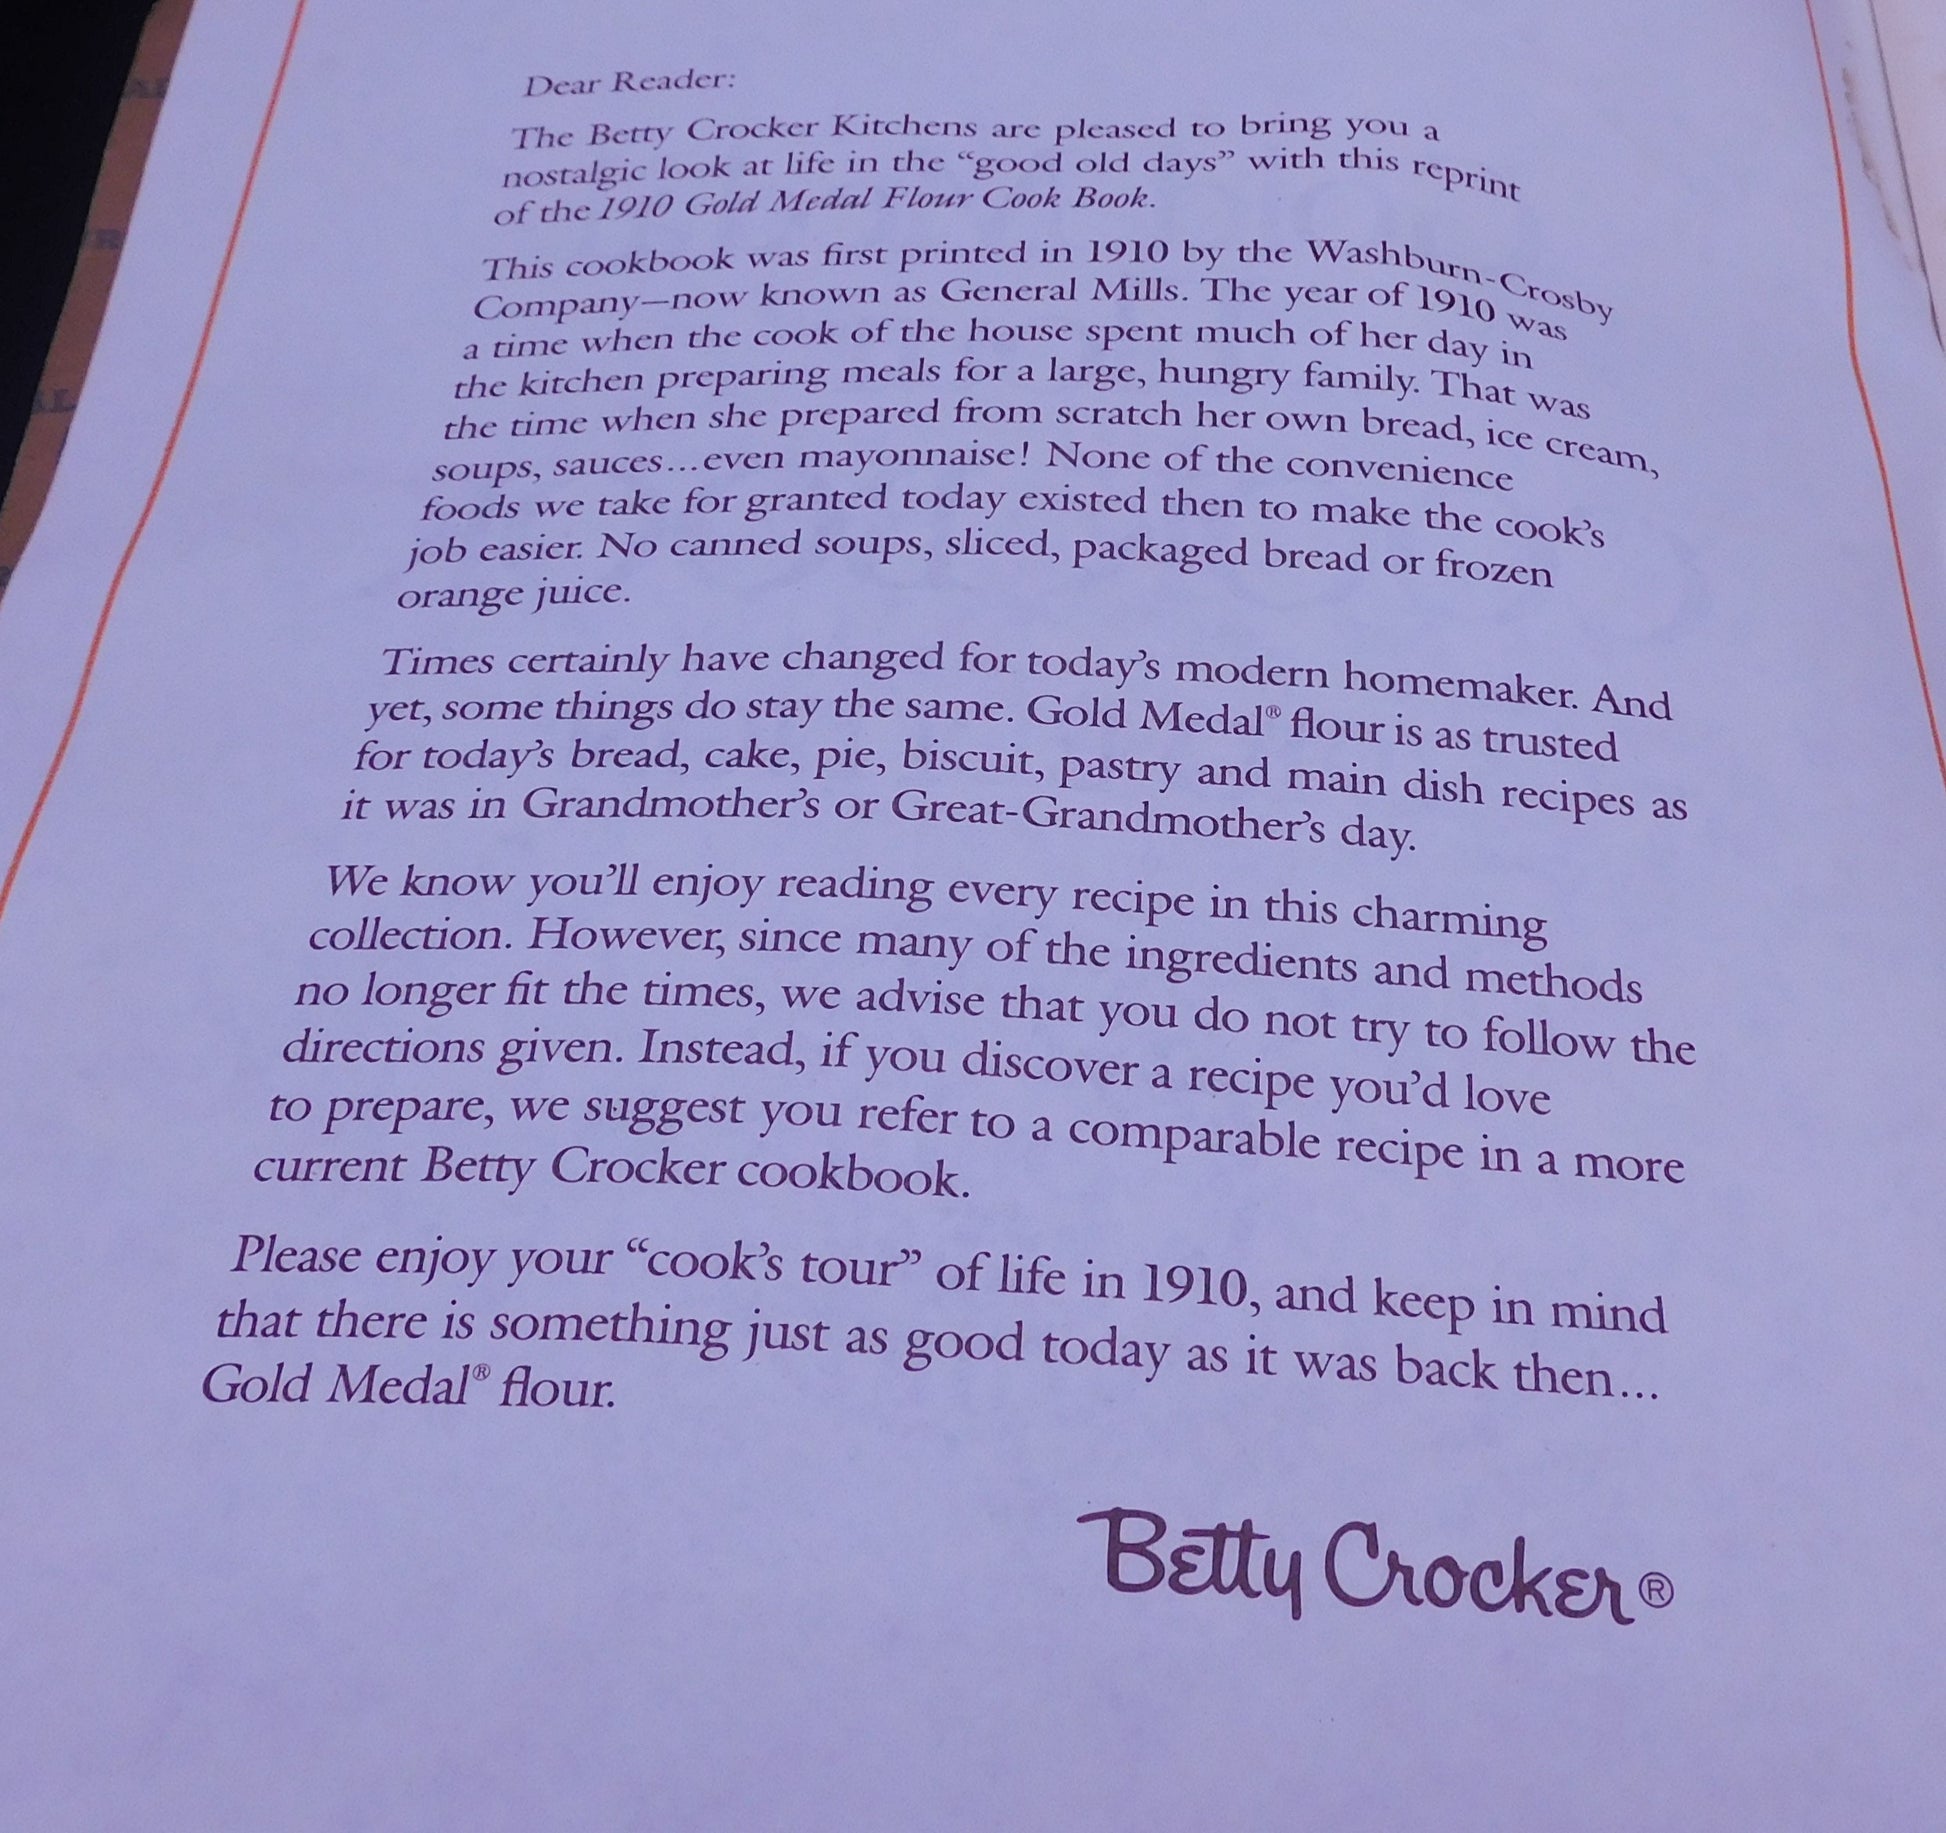 Dear Reader:
The Betty Crocker Kitchens are pleased to bring you a
nostalgic look at life in the “good old days” with this reprint
of the 1910 Gold Medal Flour Cook Book.
This cookbook was first printed in 1910 by the Washburn-Crosby
Company—now known as General Mills. The year of 1910 was
a time when the cook of the house spent much of her day in
the kitchen preparing meals for a large, hungry family. That was
the time when she prepared from scratch her own bread, ice cream,
soups, sauces...even mayonnaise! None of the convenience
foods we take for granted today existed then to make the cook’s
job easier. No canned soups, sliced, packaged bread or frozen
orange juice.
Times certainly have changed for today’s modern homemaker. And
yet, some things do stay the same. Gold Medal® flour is as trusted
for today’s bread, cake, pie, biscuit, pastry and main dish recipes as
it was in Grandmother’s or Great-Grandmother’s day.
We know you’ll enjoy reading every recipe in this charming
collection. However, since many of the ingredients and methods
no longer fit the times, we advise that you do not try to follow the
directions given. Instead, if you discover a recipe you’d love
to prepare, we suggest you refer to a comparable recipe in a more
current Betty Crocker cookbook.
Please enjoy your “cook’s tour” of life in 1910, and keep in mind
that there is something just as good today as it was back then...
Gold Medal® flour.
Betty Crocker®